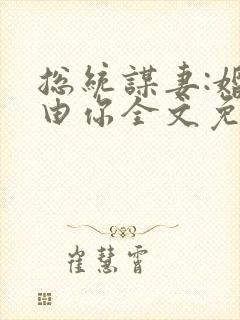 总統謀妻:婚
由你全文免
崔慧霄